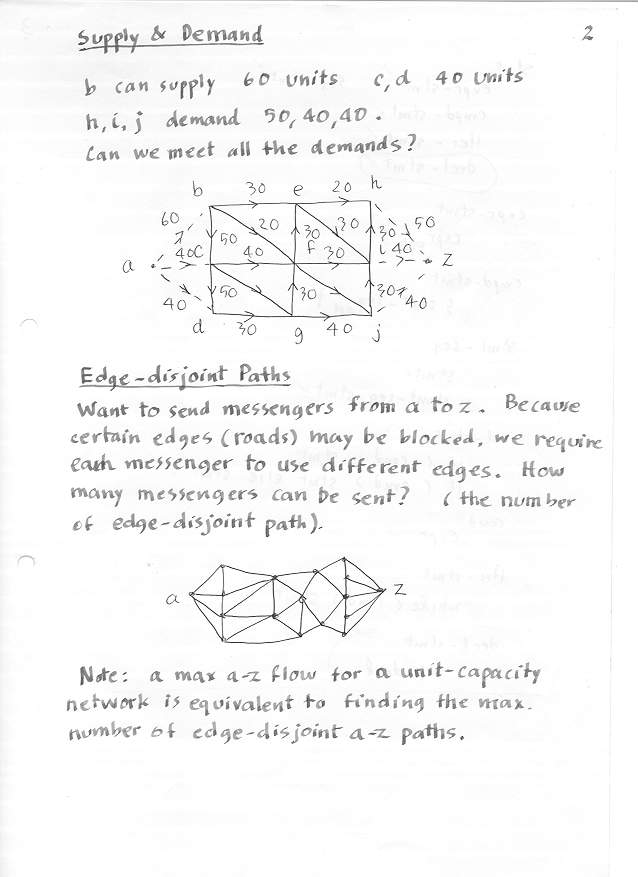 Supply & Demand 2
b can supply 60 units c, d 40 units
h, i, j demand 50, 40, 40.
Can we meet all the demands?
b 30 e 20 h
60 20 30 50
50 30 30
a 40 c 40 f 30 i 40 z
40 50 30 30 40
d 30 g 40 j
Edge-disjoint Paths
Want to send messengers from a to z. Because
certain edges (roads) may be blocked, we require
each messenger to use different edges. How
many messengers can be sent? (the number
of edge-disjoint path).
a z
Note: a max a-z flow for a unit-capacity
network is equivalent to finding the max.
number of edge-disjoint a-z paths.